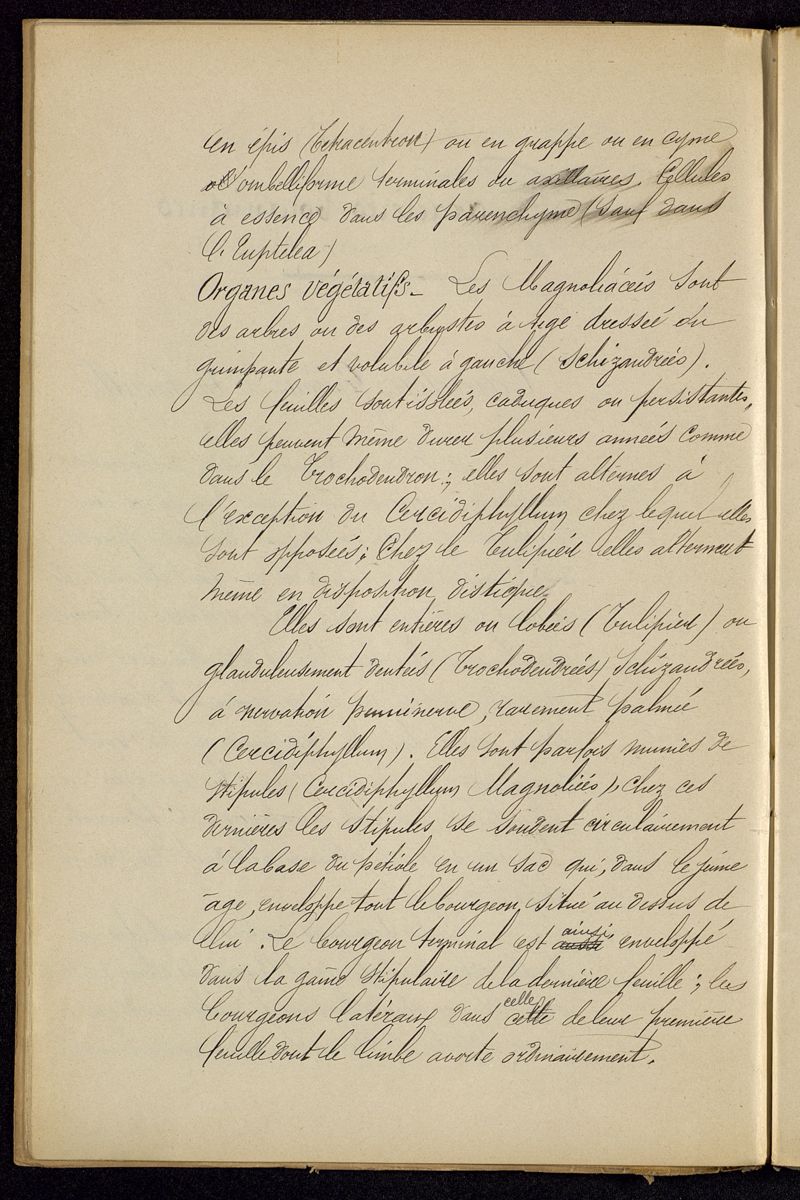 en épis (Tetracentron) ou en grappe ou en cyme
ombelliforme terminales ou axillaires. Cellules
à essence dans les parenchyme (sauf dans
l'Euptelea)
Organes végétatifs - Les Magnoliacées sont
des arbres ou des arbustes à tige dressée ou
grimpante et volubile à gauche (Schizandrées).
Les feuilles sont isolées, caduques ou persistantes,
elles peuvent même durer plusieurs années comme
dans le Trochodendron; elles sont alternes à
l'exception du Cercidiphyllum chez lequel elles
sont opposées; Chez le Tulipier elles alternent
même en disposition distique.
Elles sont entières ou lobées (Tulipier) ou
glanduleusement dentées (Trochodendrées) Schizandrées,
à nervation penninerve, rarement palmée
(Cercidiphyllum). Elles sont parfois munies de
stipules (Cercidiphyllum Magnoliées), chez ces
dernières les stipules se soudent circulairement
à la base du pétiole en un sac qui, dans le jeune
âge, enveloppe tout le bourgeon situé au dessus de
lui. Le bourgeon terminal est aussi ainsi enveloppé
dans la gaine stipulaire de la dernière feuille; les
bourgeons latéraux dans cette celle de leur première
feuille dont le limbe avorte ordinairement.